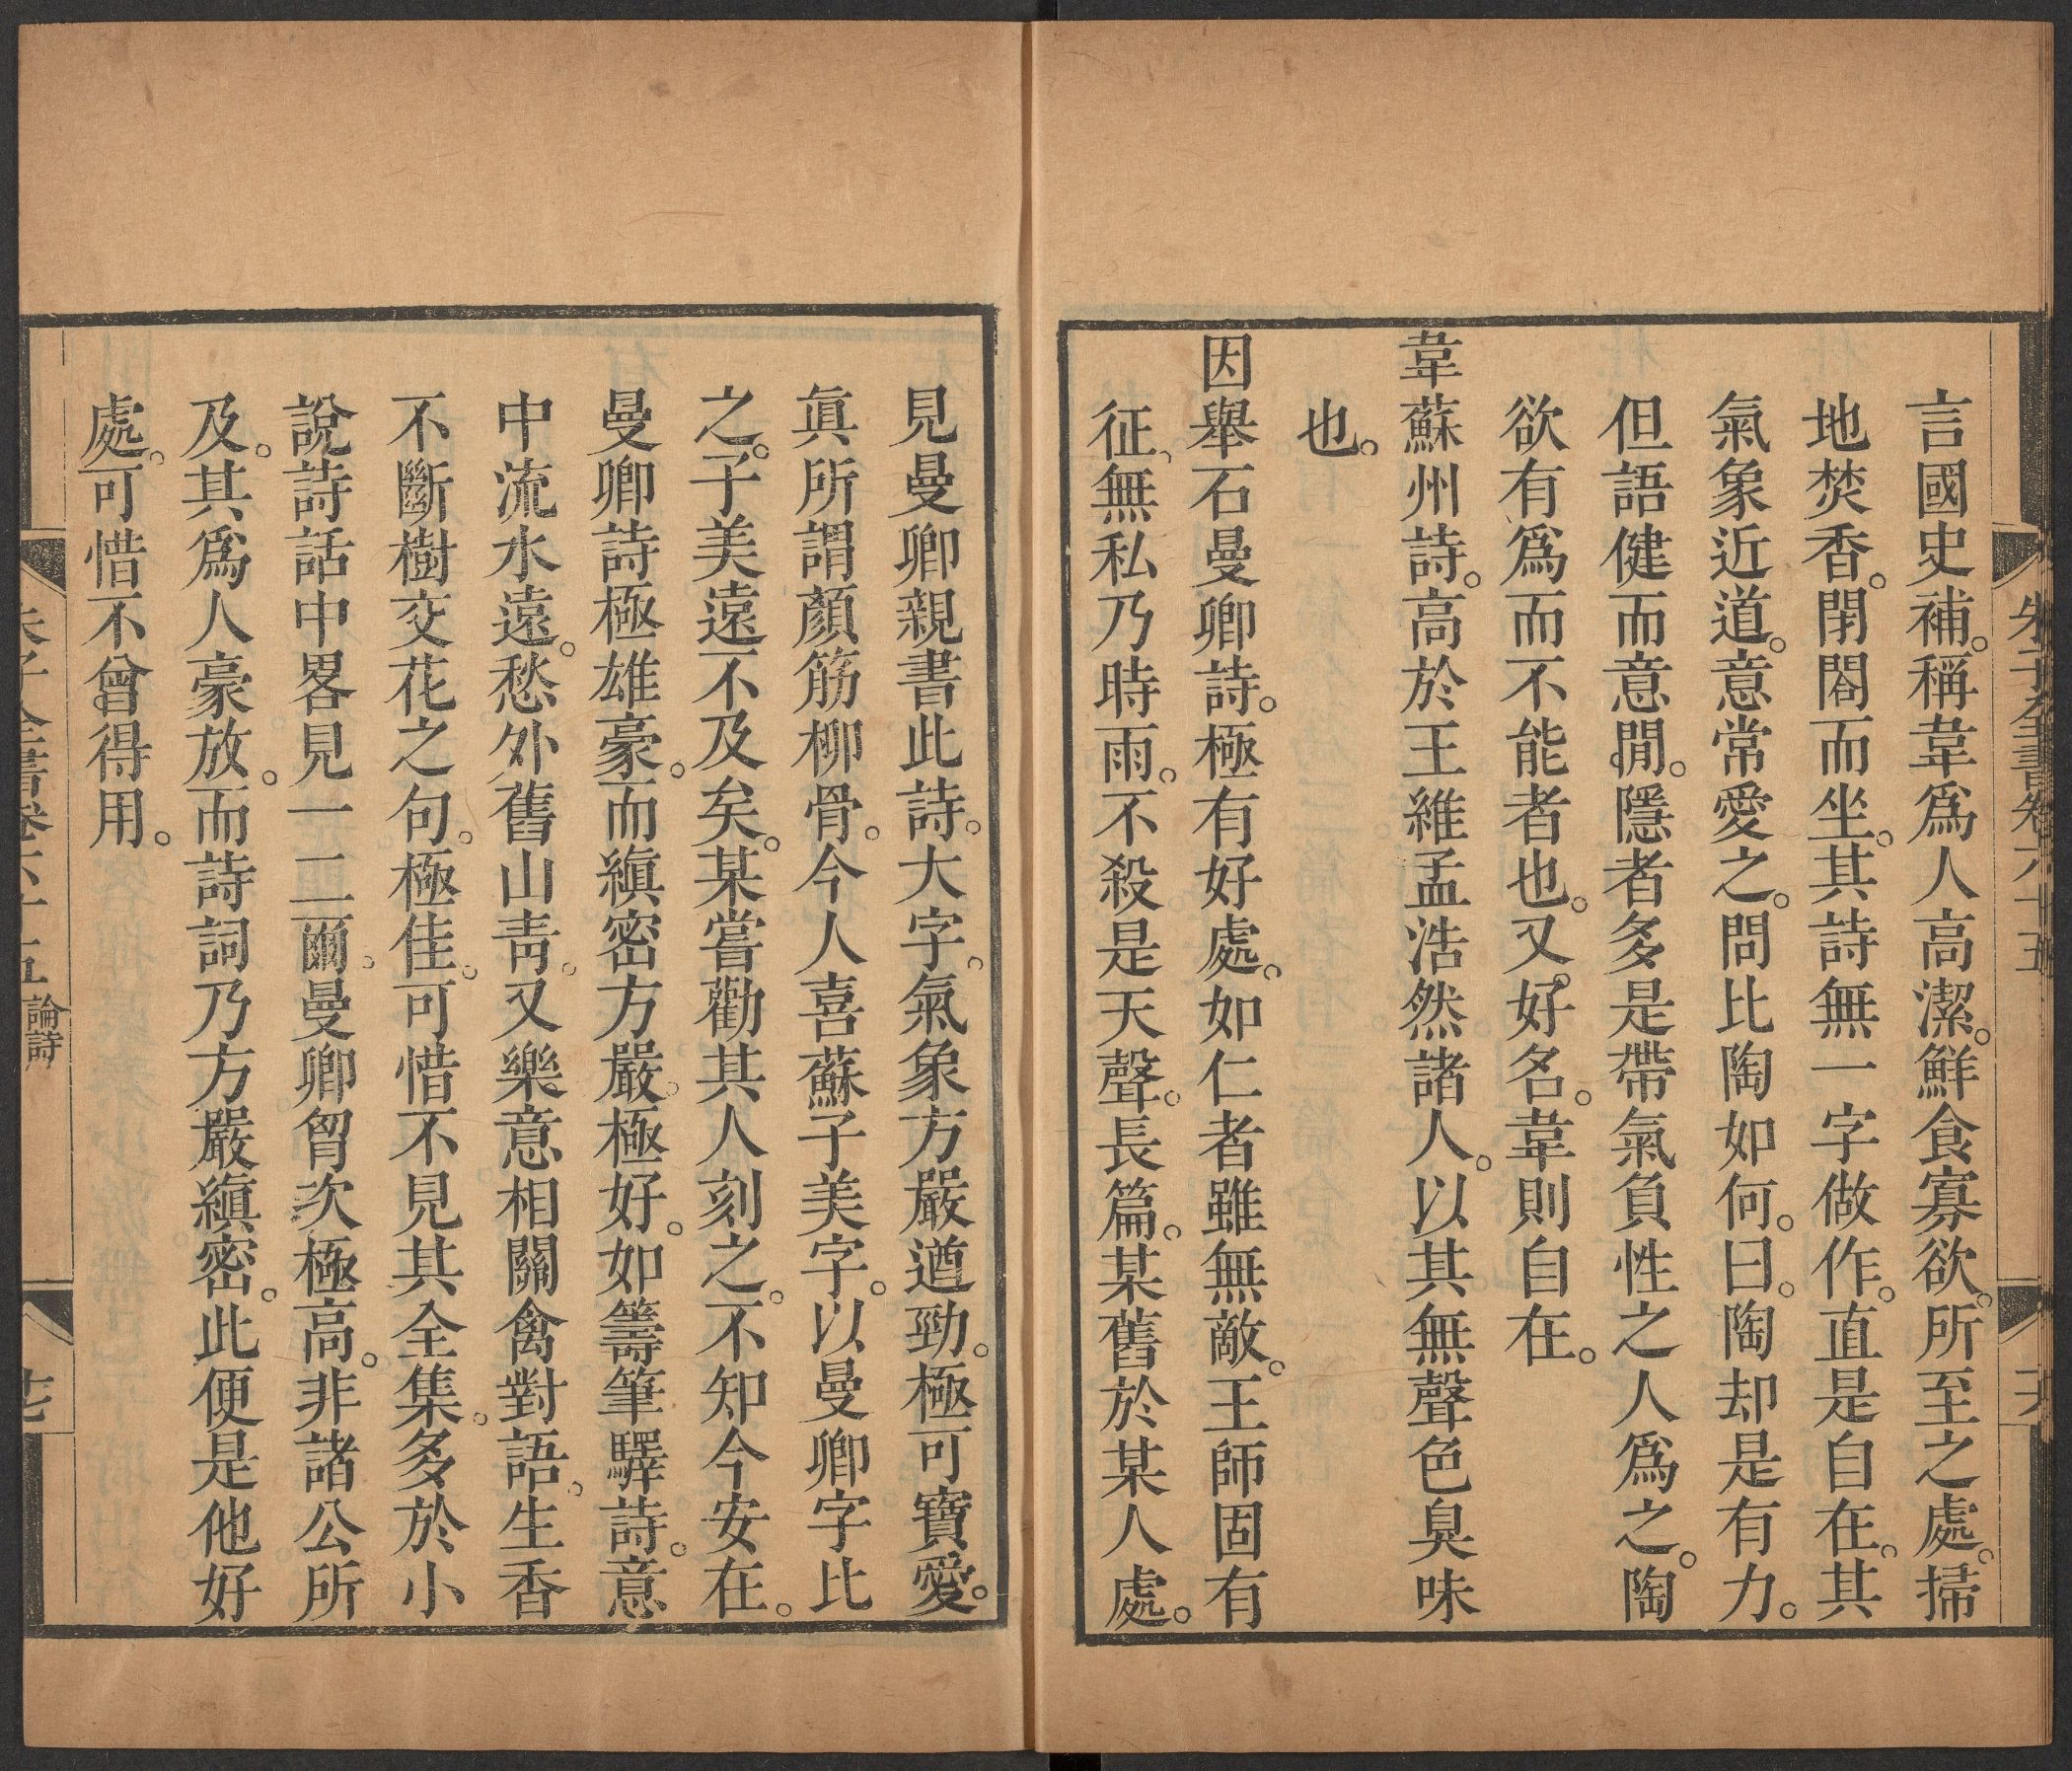 朱子全書卷六十五
言國史補。稱韋爲人高潔。鮮食寡欲。所至之處。掃
地焚香。閉閤而坐。其詩無一字做作。直是自在。其
氣象近道。意常愛之。問比陶如何。曰。陶却是有力。
但語健而意閒。隱者多是帶氣負性之人爲之。陶
欲有爲而不能者也。又好名。韋則自在。
韋蘇州詩。高於王維孟浩然諸人。以其無聲色臭味
也。
因舉石曼卿詩。極有好處。如仁者雖無敵。王師固有
征、無私乃時雨。不殺是天聲。長篇。某舊於某人處。
見曼卿親書此詩。大字。氣象方嚴遒勁。極可寶愛。
眞所謂顏筋柳骨。今人喜蘇子美字。以曼卿字比
之。子美遠不及矣。某嘗勸其人刻之。不知今安在。
曼卿詩極雄豪。而縝密方嚴。極好。如籌筆驛詩。意
中流水遠。愁外舊山靑。又樂意相關禽對語。生香
不斷樹交花之句。極佳。可惜不見其全集。多於小
說詩話中畧見一二爾。曼卿胷次極高。非諸公所
及。其爲人豪放。而詩詞乃方嚴縝密。此便是他好
處。可惜不曾得用。
朱子全書卷六十五 論詩